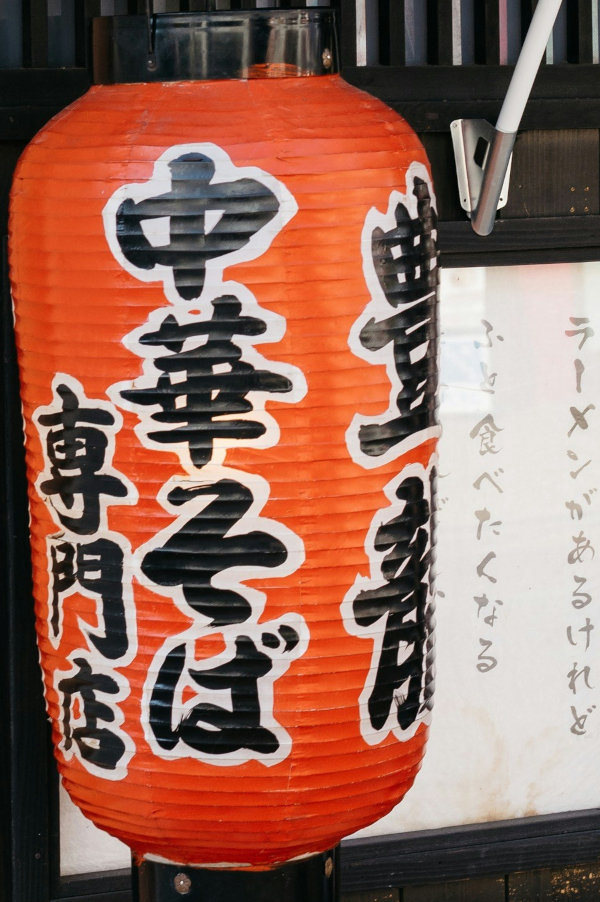 豊龍
中華そば
専門店
ラーメンがあるけれど
ふと食べたくなる